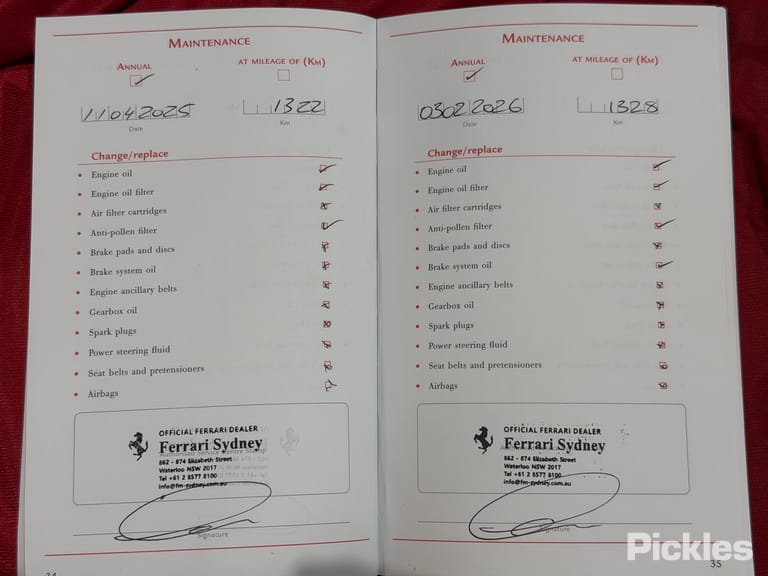 MAINTENANCE
ANNUAL
AT MILEAGE OF (KM)
11042025
1322
Date
Km
Change/replace
• Engine oil
• Engine oil filter
• Air filter cartridges
• Anti-pollen filter
• Brake pads and discs
• Brake system oil
• Engine ancillary belts
• Gearbox oil
• Spark plugs
• Power steering fluid
• Seat belts and pretensioners
• Airbags
OFFICIAL FERRARI DEALER
Ferrari Sydney
Authorised Service Centre Stamp
862 - 874 Elizabeth Street
Waterloo NSW 2017
Tel +61 2 8577 8100
info@fm-sydney.com.au
Signature
34
MAINTENANCE
ANNUAL
AT MILEAGE OF (KM)
03022026
1328
Date
Km
Change/replace
• Engine oil
• Engine oil filter
• Air filter cartridges
• Anti-pollen filter
• Brake pads and discs
• Brake system oil
• Engine ancillary belts
• Gearbox oil
• Spark plugs
• Power steering fluid
• Seat belts and pretensioners
• Airbags
OFFICIAL FERRARI DEALER
Ferrari Sydney
862 - 874 Elizabeth Street
Waterloo NSW 2017
Tel +61 2 8577 8100
info@fm-sydney.com.au
Signature
35
Pickles